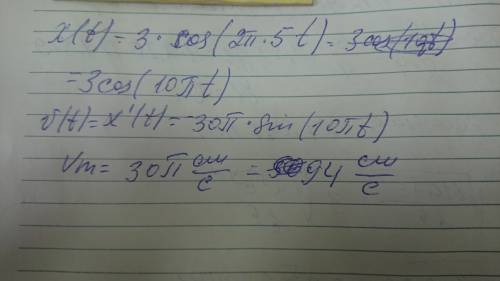 x(t) = 3 · cos(2π · 5t) =
= 3cos(10πt)
v(t) = x'(t) = -30π · sin(10πt)
Vm = 30π см/с = 94 см/с